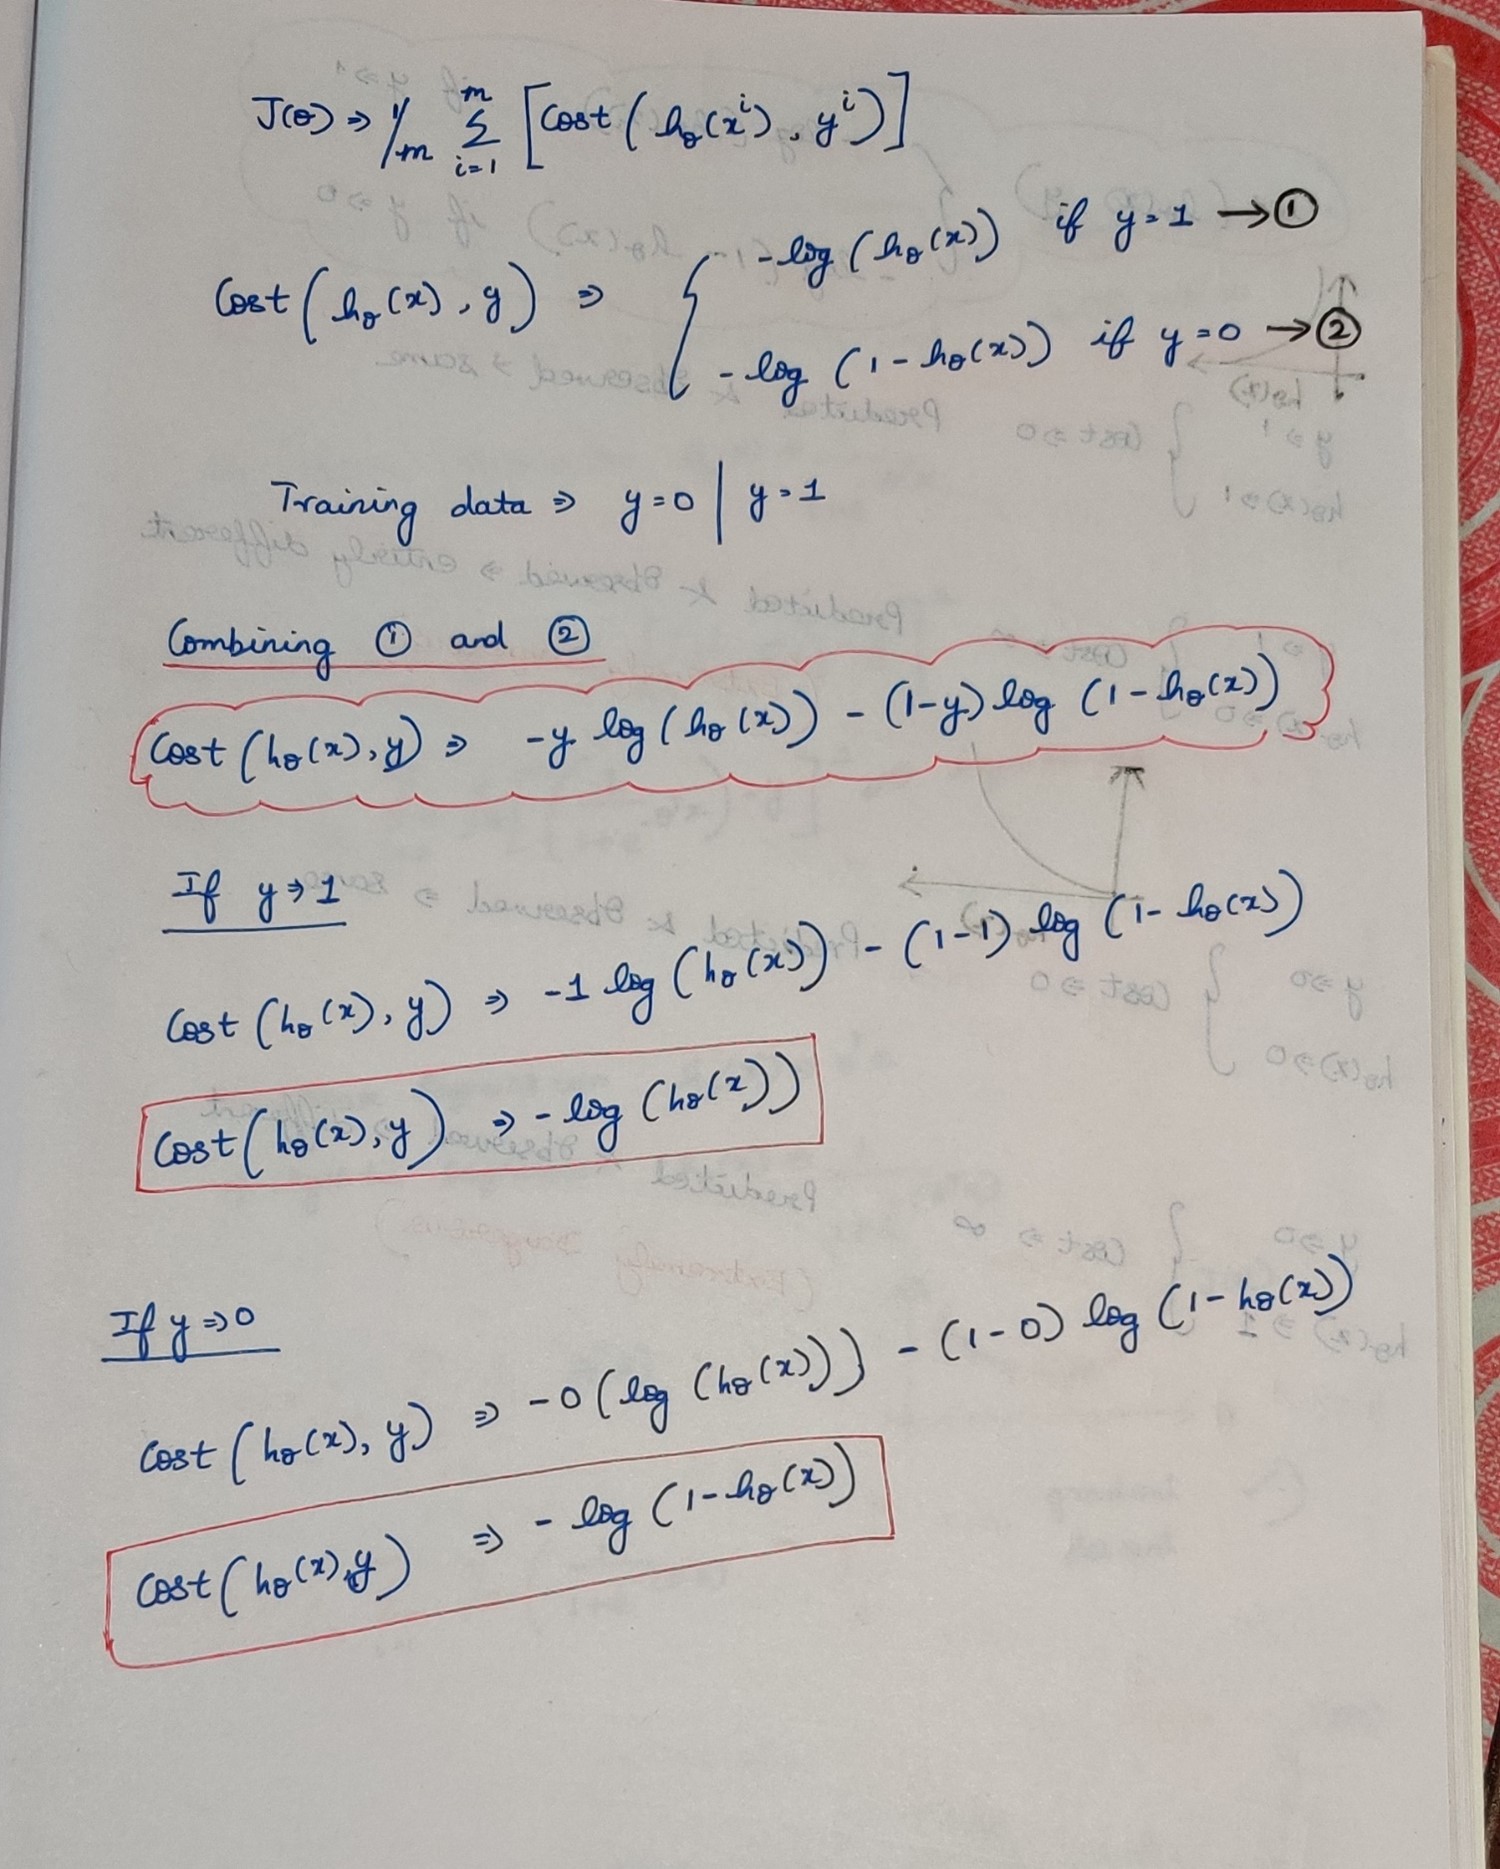 J(θ) ⇒ 1/m Σ_{i=1}^{m} [Cost(hθ(x^i), y^i)]
Cost(hθ(x), y) ⇒ { -log(hθ(x)) if y=1 → ①
-log(1-hθ(x)) if y=0 → ②
Training data ⇒ y=0 | y=1
Combining ① and ②
Cost(hθ(x), y) ⇒ -y log(hθ(x)) - (1-y) log(1-hθ(x))
If y ⇒ 1
Cost(hθ(x), y) ⇒ -1 log(hθ(x)) - (1-1) log(1-hθ(x))
Cost(hθ(x), y) ⇒ -log(hθ(x))
If y ⇒ 0
Cost(hθ(x), y) ⇒ -0(log(hθ(x))) - (1-0) log(1-hθ(x))
Cost(hθ(x), y) ⇒ -log(1-hθ(x))